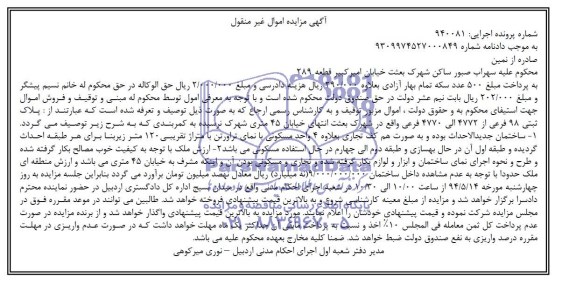 آگهی مزایده اموال غیر منقول
شماره پرونده اجرایی: ۹۴۰۰۸۱
به موجب دادنامه شماره ۹۳۰۹۹۷۴۵۲۷۰۰۰۸۴۹
صادره از نمین
محکوم علیه سهراب صبور ساکن شهرک بعثت خیابان امیرکبیر قطعه ۲۸۹
به پرداخت مبلغ ۵۰۰ عدد سکه تمام بهار آزادی بعلاوه ریال هزینه دادرسی و مبلغ ۲/۰۰۰/۰۰۰ ریال حق الوکاله در حق محکوم له خانم نسیم پیشگر
و مبلغ ۲۰۲/۰۰۰ ریال بابت نیم عشر دولت در حق صندوق دولت محکوم شده است و با توجه به معرفی اموال توسط محکوم له مبنی و توقیف و فروش اموال
جهت استیفای محکوم به و حقوق دولت ، اموال مزبور توقیف و به کارشناس رسمی ارجاع که به صورت ذیل توصیف و تعرفه شده است که عبارتند از : پلاک
ثبتی ۹۸ فرعی از ۴۷۷۲ الی ۴۷۷۰ فرعی واقع در شهرک بعثت انتهای خیابان ۴۵ متری شهرک نرسیده به کمربندی که به شرح زیر توصیف می گردد.
۱- ساختمان جدیدالاحداث بوده و به صورت همکف تجاری بعلاوه ۴ واحد مسکونی با نمای تراورتن با متراژ تقریبی ۱۲۰ متر زیربنا برای هر طبقه احداث
گردیده و طبقه اول آن در حال بهسازی و طبقه دوم الی چهارم در حال استفاده مسکونی می باشد ۲- ارزش ملک با توجه به کیفیت خوب مصالح بکار گرفته شده
و طرح و نحوه اجرای نمای ساختمان و ابزار و لوازم بکار گرفته شده و تجاری و مسکونی بودن آن و اینکه مشرف به خیابان ۴۵ متری می باشد و ارزش منطقه ای
ملک حدودا با توجه به عدم مشاهده داخل ساختمان ریال معادل نهصد میلیون تومان برآورد می گردد بنابراین جلسه مزایده به روز
چهارشنبه مورخه ۹۴/۵/۱۴ از ساعت ۱۰/۰۰ الی ۱۰/۳۰ در شعبه اجرای احکام مدنی واقع در میدان بسیج اداره کل دادگستری اردبیل در حضور نماینده محترم
دادسرا برگزار خواهد شد و مزایده از مبلغ معینه کارشناسی شروع و به بالاترین قیمت پیشنهادی فروخته خواهد شد. طالبین می توانند در موعد مقرره فوق در
مجلس مزایده شرکت نموده و قیمت پیشنهادی خودشان را اعلام نمایند مورد مزایده به بالاترین قیمت پیشنهادی واگذار خواهد شد و از برنده مزایده در صورت
عدم پرداخت کل ثمن معامله فی المجلس ۱۰٪ اخذ و نسبت به پرداخت مابقی آن حداکثر یک ماه مهلت خواهد داشت که در صورت عدم واریزی در مهلت
مقرره درصد واریزی به نفع صندوق دولت ضبط خواهد شد. ضمنا کلیه مخارج بعهده محکوم علیه می باشد.
مدیر دفتر شعبه اول اجرای احکام مدنی اردبیل - نوری میرکوهی